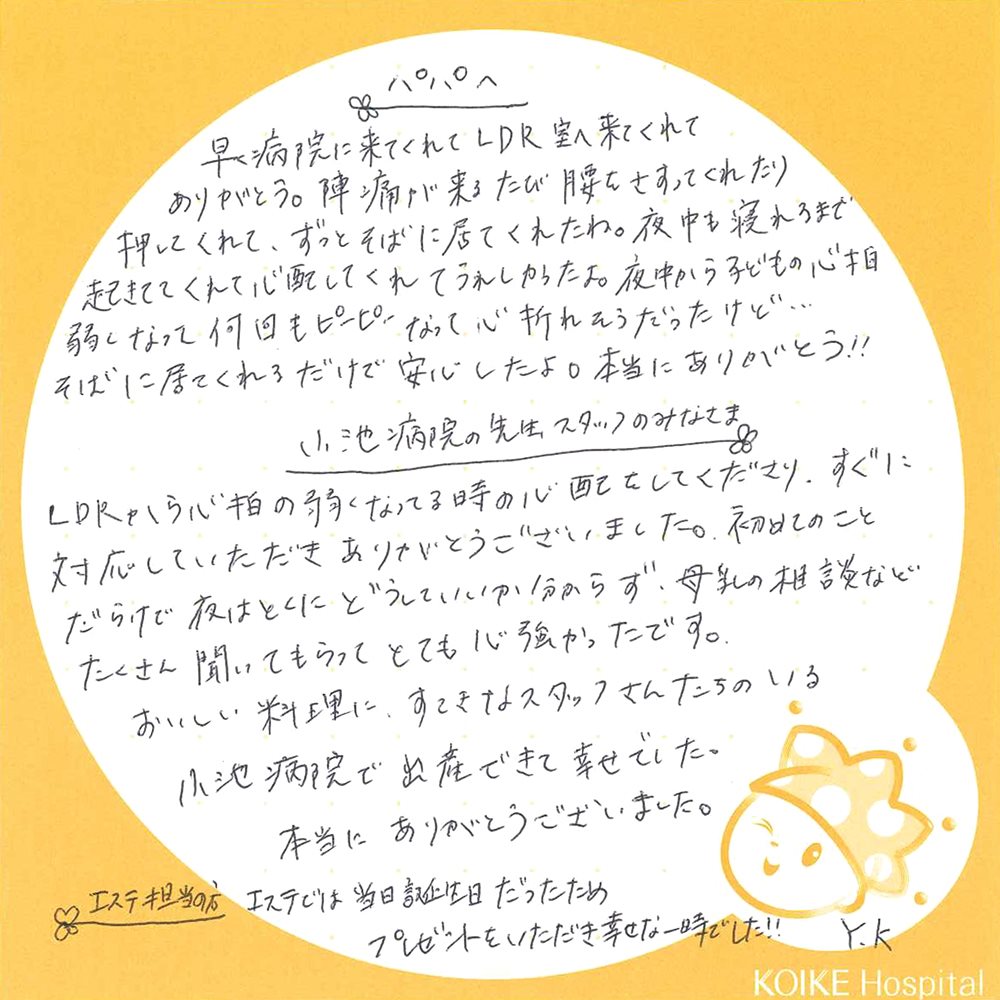 パパへ
早く病院に来てくれてLDR室へ来てくれて
ありがとう。陣痛が来るたび腰をさすってくれたり
押してくれて、ずっとそばに居てくれたね。夜中も寝れるまで
起きててくれて心配してくれてうれしかったよ。夜中から子どもの心拍
弱くなって何回もピーピーなって心折れそうだったけど…
そばに居てくれるだけで安心したよ。本当にありがとう!!
小池病院の先生、スタッフのみなさま
LDRから心拍の弱くなってる時の心配をしてくださり、すぐに
対応していただきありがとうございました。初めてのこと
だらけで夜はとくにどうしていいか分からず、母乳の相談など
たくさん聞いてもらってとても心強かったです。
おいしい料理に、すてきなスタッフさんたちのいる
小池病院で出産できて幸せでした。
本当にありがとうございました。
エステ担当の方 エステでは当日誕生日だったため
プレゼントをいただき幸せな一時でした!! Y.K
KOIKE Hospital